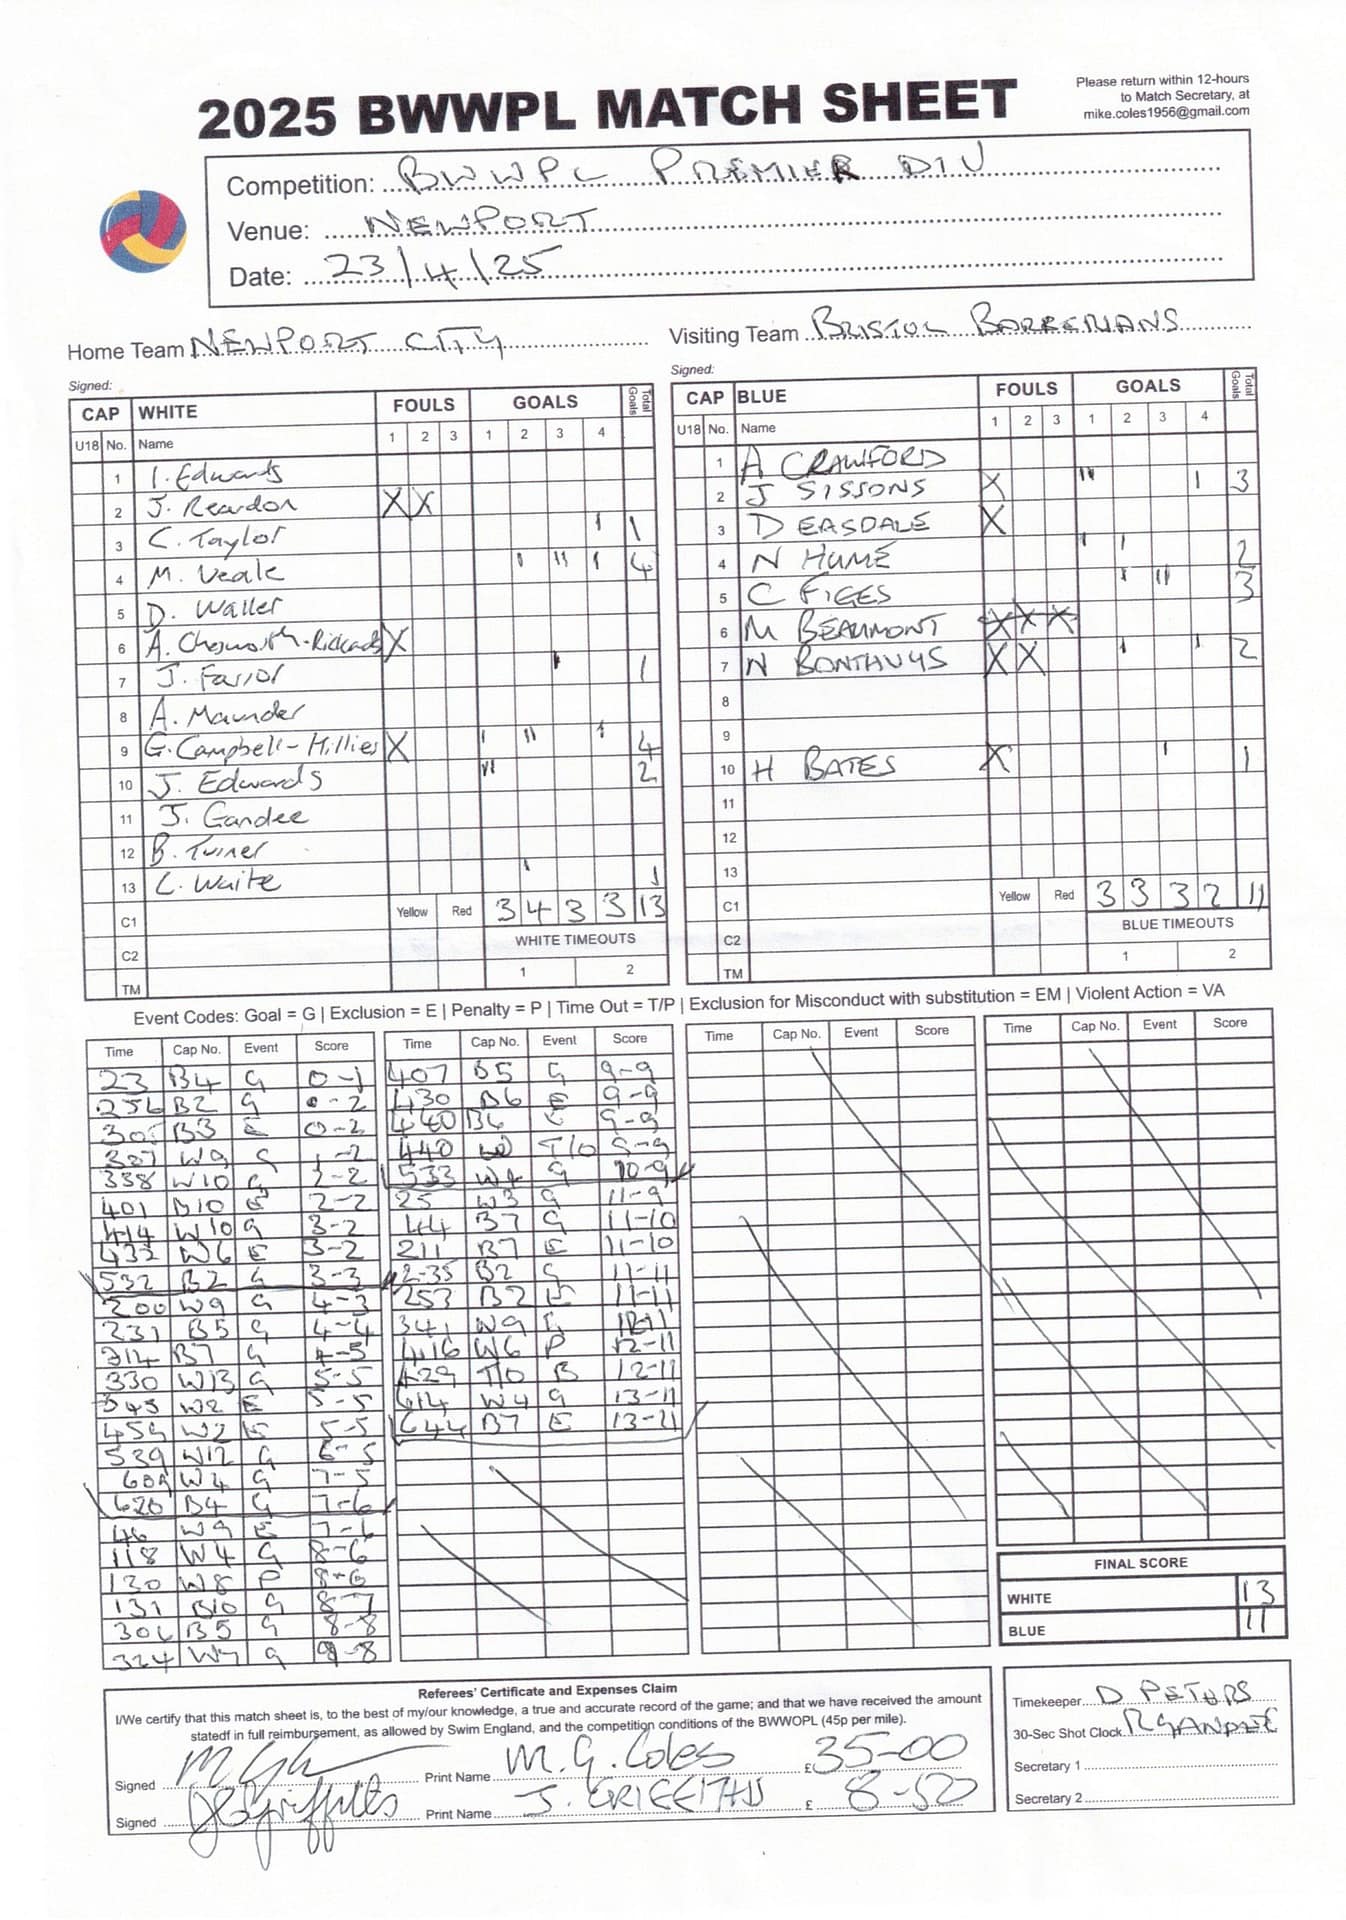 2025 BWWPL MATCH SHEET
Please return within 12-hours
to Match Secretary, at
mike.coles1956@gmail.com
Competition: BWWPL PREMIER DIV
Venue: NEWPORT
Date: 23/4/25
Home Team NEWPORT CITY
Visiting Team BRISTOL BARBERIANS
Signed:
Signed:
CAP WHITE FOULS GOALS Total Goals
U18 No. Name 1 2 3 1 2 3 4
1 I. Edwards
2 J. Reardon X X
3 C. Taylor I 1
4 M. Veale I II I 4
5 D. Waller
6 A. Chesworth-Rickards X
7 J. Farror I 1
8 A. Maunder
9 G. Campbell-Hillies X I II I 4
10 J. Edwards II 2
11 J. Gandee
12 B. Turner
13 C. Waite I 1
C1 Yellow Red 3 4 3 3 13
C2 WHITE TIMEOUTS
TM 1 2
CAP BLUE FOULS GOALS Total Goals
U18 No. Name 1 2 3 1 2 3 4
1 A CRAWFORD
2 J SISSONS X II I 3
3 D EASDALE X
4 N HUME I I 2
5 C FIGES I II 3
6 M BEAUMONT X X X
7 N BONTHUYS X X I I 2
8
9
10 H BATES X I 1
11
12
13
C1 Yellow Red 3 3 3 2 11
C2 BLUE TIMEOUTS
TM 1 2
Event Codes: Goal = G | Exclusion = E | Penalty = P | Time Out = T/P | Exclusion for Misconduct with substitution = EM | Violent Action = VA
Time Cap No. Event Score
23 B4 G 0-1
256 B2 G 0-2
305 B3 E 0-2
307 W9 G 1-2
338 W10 G 2-2
401 B10 E 2-2
414 W10 G 3-2
432 W6 E 3-2
532 B2 G 3-3
200 W9 G 4-3
231 B5 G 4-4
314 B7 G 4-5
330 W13 G 5-5
345 W2 E 5-5
459 W2 E 5-5
539 W12 G 6-5
609 W4 G 7-5
620 B4 G 7-6
46 W9 E 7-6
118 W4 G 8-6
130 W8 P 8-6
131 B10 G 8-7
306 B5 G 8-8
324 W7 G 9-8
Time Cap No. Event Score
407 B5 G 9-9
430 B6 E 9-9
440 B6 E 9-9
440 W T/O 9-9
533 W4 G 10-9
25 W3 G 11-9
44 B7 G 11-10
211 B7 E 11-10
2-35 B2 G 11-11
253 B2 E 11-11
341 W9 G 12-11
416 W6 P 12-11
429 T/O B 12-11
614 W4 G 13-11
644 B7 E 13-11
Time Cap No. Event Score
Time Cap No. Event Score
FINAL SCORE
WHITE 13
BLUE 11
Referees' Certificate and Expenses Claim
I/We certify that this match sheet is, to the best of my/our knowledge, a true and accurate record of the game; and that we have received the amount
statedf in full reimbursement, as allowed by Swim England, and the competition conditions of the BWWOPL (45p per mile).
Signed Print Name M. G. Coles £ 35-00
Signed JGriffiths Print Name J. GRIFFITHS £ 8-50
Timekeeper D PETERS
30-Sec Shot Clock R GANDEE
Secretary 1
Secretary 2